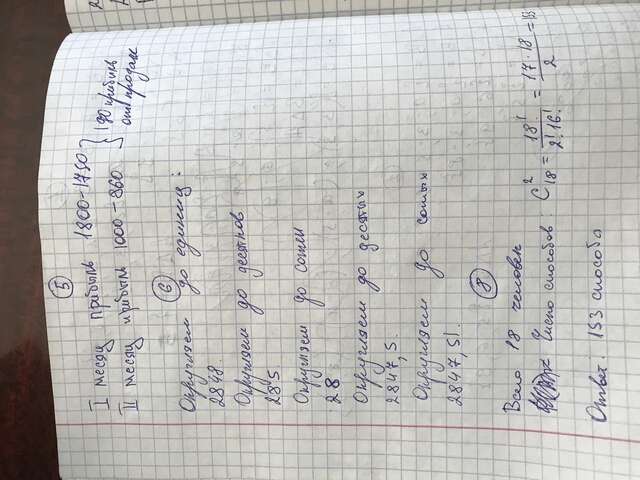 5
I месяц прибыль 1800-1750
II месяц прибыль 1000-860
190 прибыль
от продаж
6
Округляем до единиц:
2848.
Округляем до десятков
285
Округляем до сотен
28
Округляем до десятых
2847,5.
Округляем до сотых
2847,51.
8
Всего 18 человек
Число способов: C²₁₈ = 18!/2!·16! = 17·18/2 = 153
Ответ. 153 способа